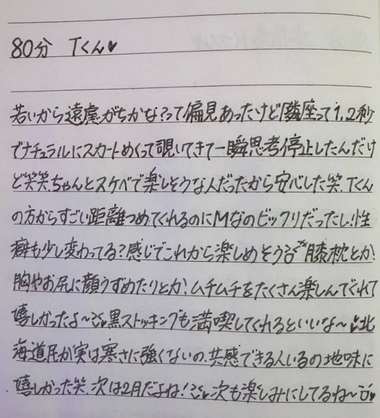 80分 Tくん♥
若いから遠慮がちかな?って偏見あったけど隣座って1,2秒
でナチュラルにスカートめくって覗いてきて一瞬思考停止したんだけ
ど笑笑ちゃんとスケベで楽しそうな人だったから安心した笑.Tくん
の方からすごい距離つめてくれるのにMなのビックリだったし、性
癖も少し変わってる?感じでこれから楽しめそう 膝枕とか!
胸やお尻に顔うずめたりとか!ムチムチをたくさん楽しんでくれて
嬉しかったよ〜 黒ストッキングも満喫してくれるといいな〜 北
海道民が実は寒さに強くないの、共感できる人いるの地味に
嬉しかった笑.次は2月だよね! 次も楽しみにしてるね〜